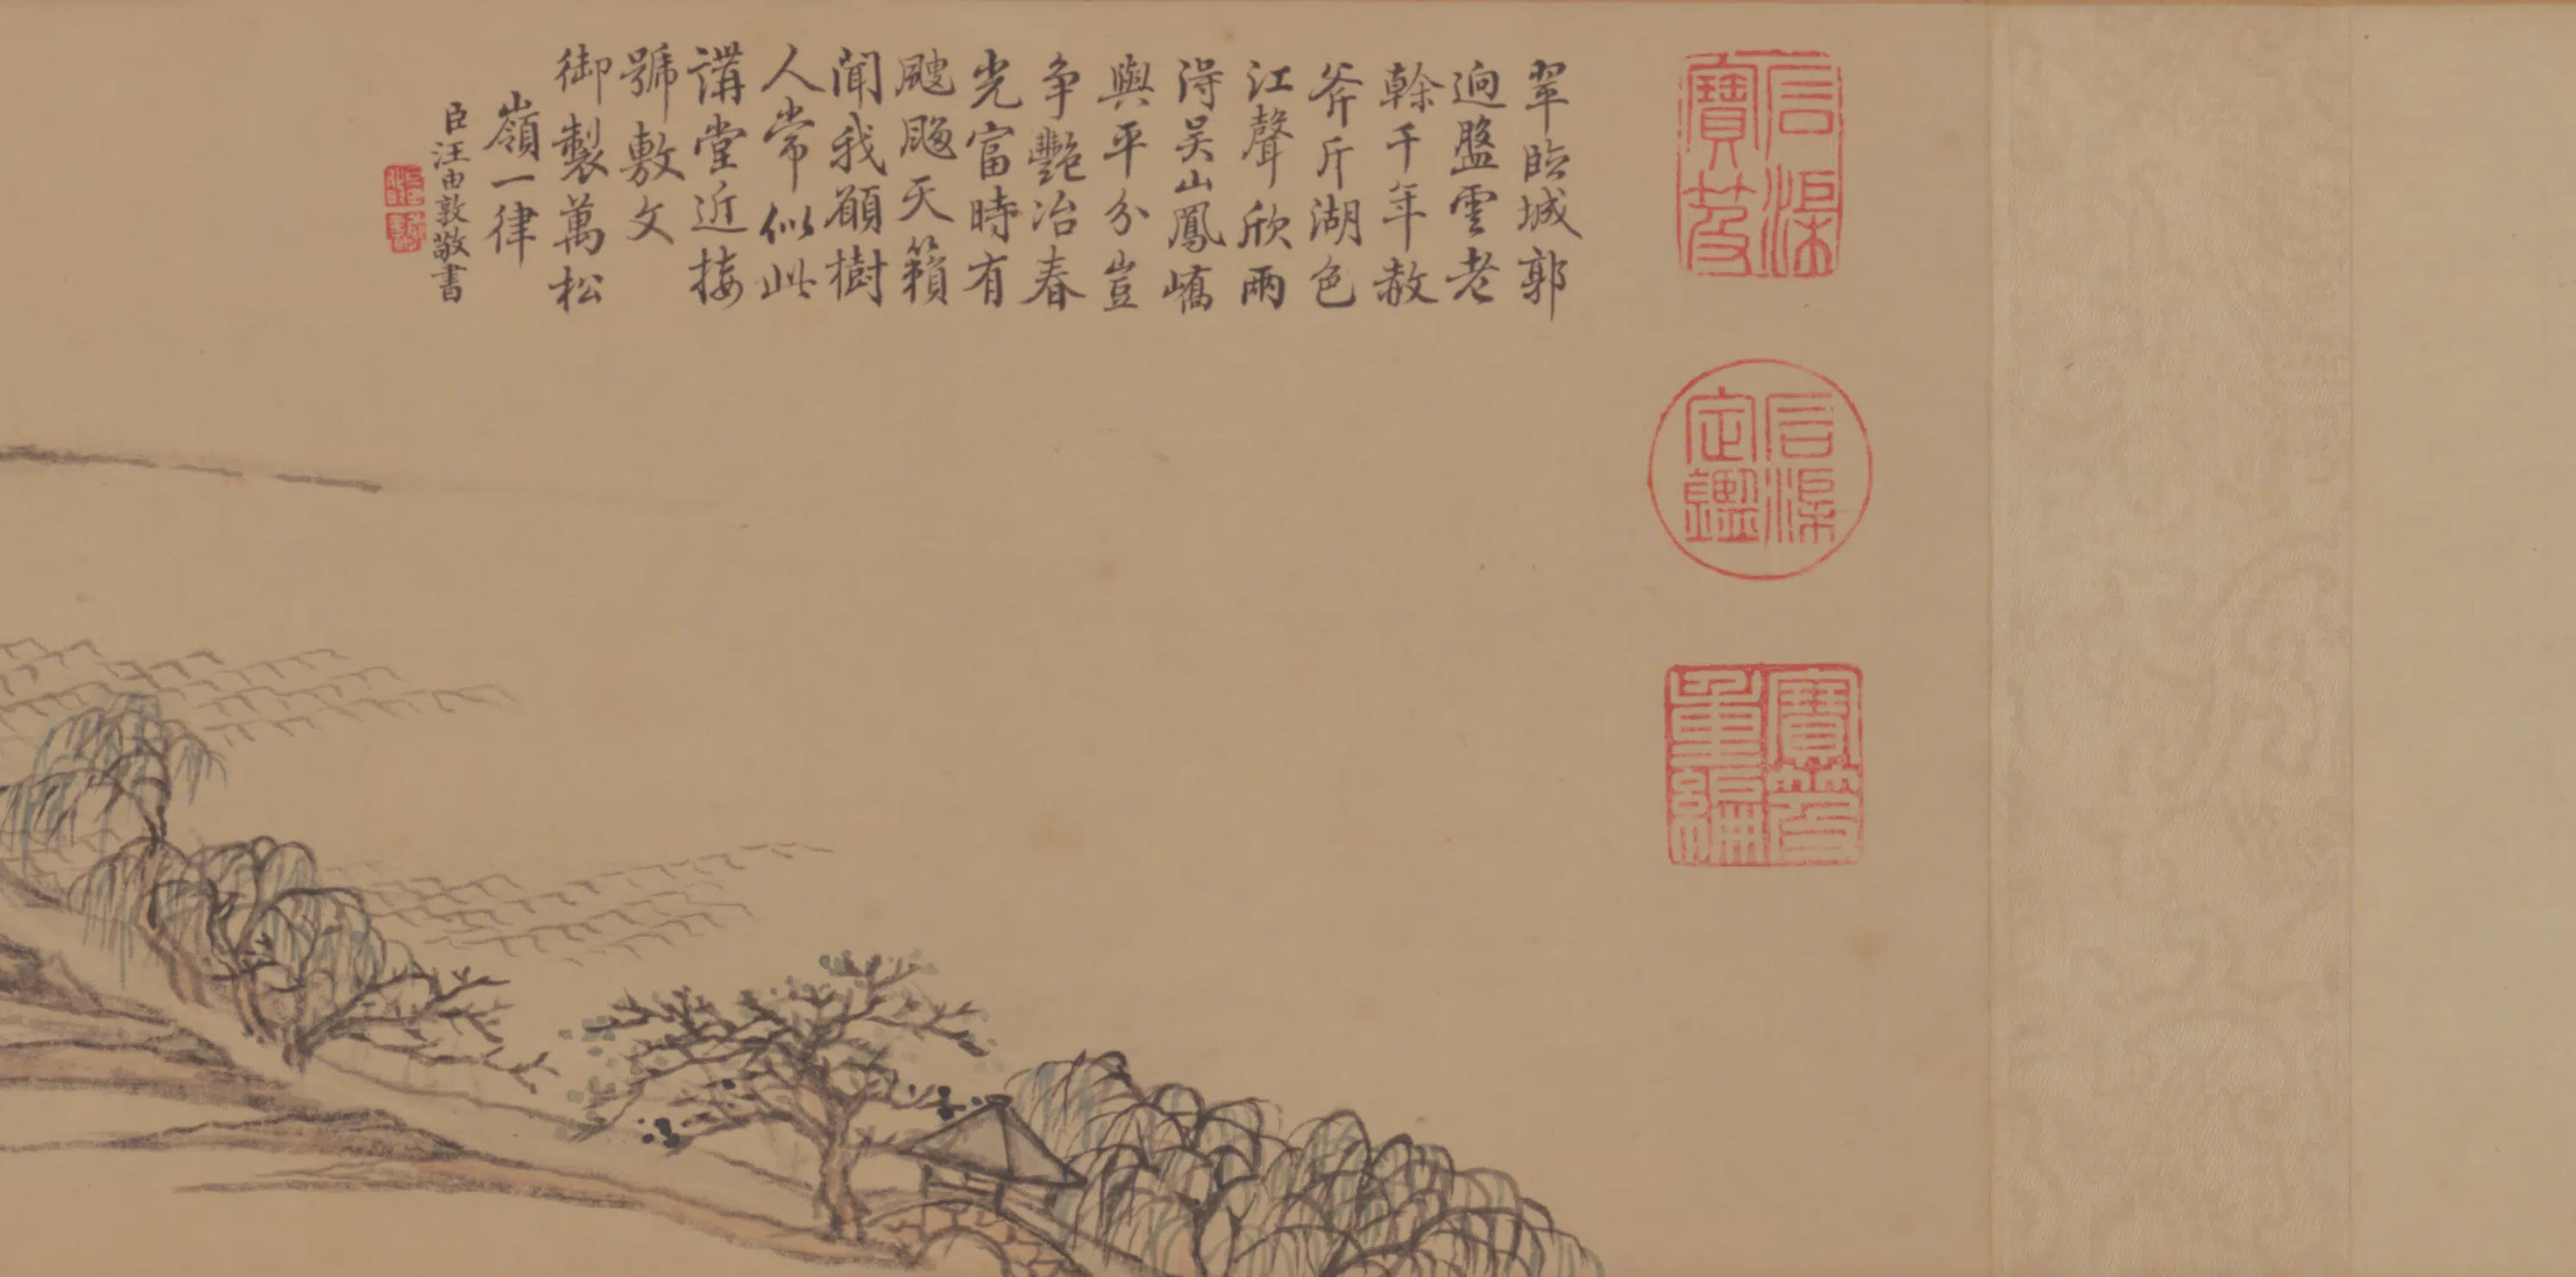 翠臨城郭
迥盤雲老
榦千年赦
斧斤湖色
江聲欣兩
淂吴山鳳嶠
與平分豈
争艷冶春
光富時有
颼飀天籟
聞我願樹
人常似此
講堂近接
號敷文
御製萬松
嶺一律
臣汪由敦敬書
石渠寶笈
石渠定鑑
寶笈重編